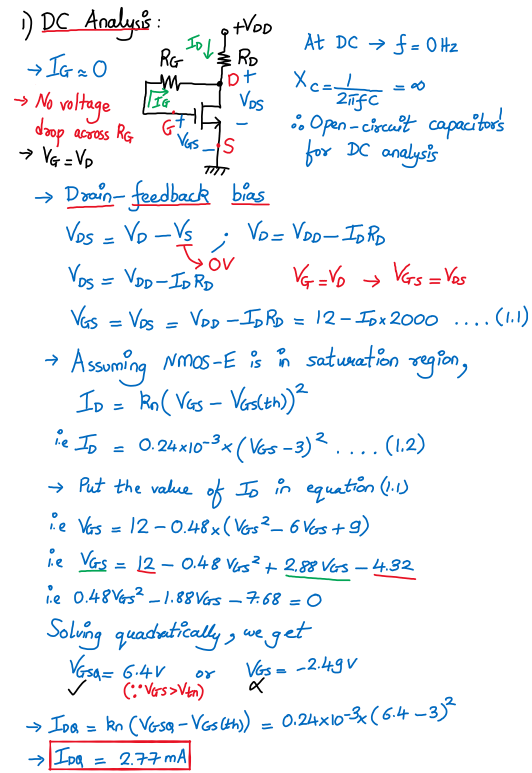 i) DC Analysis :
+VDD
ID ↓
RG
RD
D +
→ IG ≈ 0
IG
VDS
→ No voltage
drop across RG
G +
VGS -
-
S
→ VG = VD
At DC → f = 0 Hz
XC = 1/2πfC = ∞
∴ Open-circuit capacitors
for DC analysis
→ Drain-feedback bias
VDS = VD - VS ; VD = VDD - IDRD
→ 0V
VDS = VDD - IDRD
VG = VD → VGS = VDS
VGS = VDS = VDD - IDRD = 12 - ID×2000 .... (1.1)
→ Assuming NMOS-E is in saturation region,
ID = kn( VGS - VGS(th))²
i.e ID = 0.24×10⁻³×( VGS -3)² .... (1.2)
→ Put the value of ID in equation (1.1)
i.e VGS = 12 - 0.48×( VGS² - 6VGS + 9)
i.e VGS = 12 - 0.48 VGS² + 2.88 VGS - 4.32
i.e 0.48VGS² - 1.88VGS - 7.68 = 0
Solving quadratically, we get
VGSQ = 6.4V or VGS = -2.49V
✓ (∵ VGS > Vtn) ✗
→ IDQ = kn (VGSQ - VGS(th)) = 0.24×10⁻³×( 6.4 - 3)²
→ IDQ = 2.77 mA